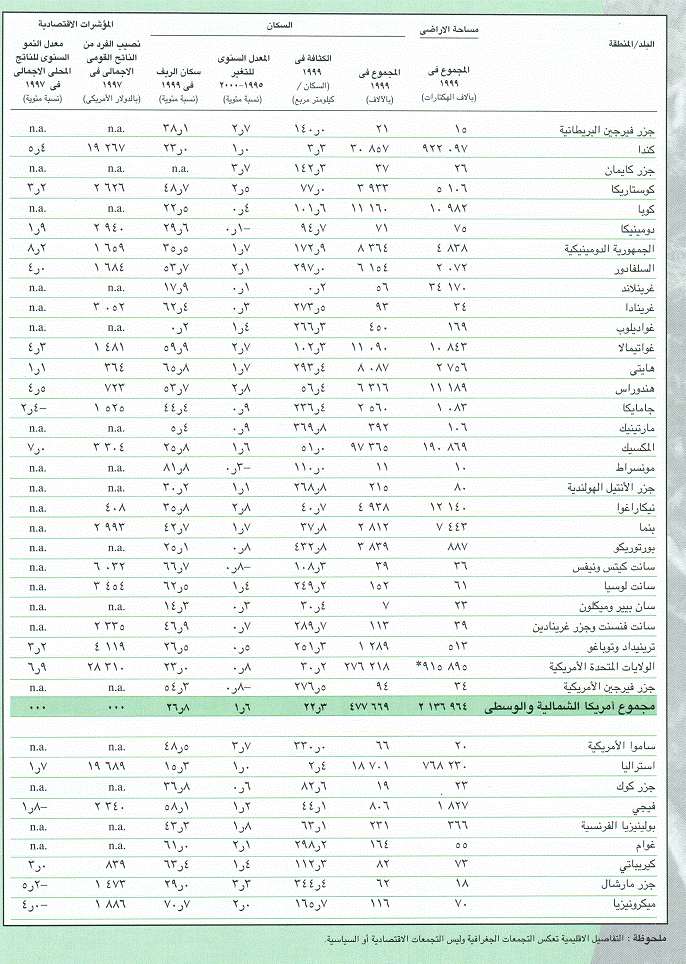 البلد/المنطقة مساحة الاراضى السكان المؤشرات الاقتصادية
المجموع فى ١٩٩٩ (بآلاف الهكتارات) المجموع فى ١٩٩٩ (بالآلاف) الكثافة فى ١٩٩٩ (السكان / كيلومتر مربع) المعدل السنوى للتغير ١٩٩٥-٢٠٠٠ (نسبة مئوية) سكان الريف فى ١٩٩٩ (نسبة مئوية) نصيب الفرد من الناتج القومى الاجمالى فى ١٩٩٧ (بالدولار الأمريكي) معدل النمو السنوى للناتج المحلى الاجمالى فى ١٩٩٧ (نسبة مئوية)
جزر فيرجين البريطانية ١٥ ٢١ ١٤٠ر٠ ٢ر٧ ٣٨ر١ n.a. n.a.
كندا ٩٢٢ ٠٩٧ ٣٠ ٨٥٧ ٣ر٣ ١ر٠ ٢٣ر٠ ١٩ ٢٦٧ ٤ر٥
جزر كايمان ٢٦ ٣٧ ١٤٢ر٣ ٣ر٧ n.a. n.a. n.a.
كوستاريكا ٥ ١٠٦ ٣ ٩٣٣ ٧٧ر٠ ٢ر٥ ٤٨ر٧ ٢ ٦٢٦ ٣ر٢
كوبا ١٠ ٩٨٢ ١١ ١٦٠ ١٠١ر٦ ٠ر٤ ٢٢ر٥ n.a. n.a.
دومينيكا ٧٥ ٧١ ٩٤ر٧ ٠ر١– ٢٩ر٦ ٢ ٩٤٠ ١ر٩
الجمهورية الدومينيكية ٤ ٨٣٨ ٨ ٣٦٤ ١٧٢ر٩ ١ر٧ ٣٥ر٥ ١ ٦٥٩ ٨ر٢
السلفادور ٢ ٠٧٢ ٦ ١٥٤ ٢٩٧ر٠ ٢ر١ ٥٣ر٧ ١ ٦٨٤ ٤ر٠
غرينلاند ٣٤ ١٧٠ ٥٦ ٠ر٢ ٠ر١ ١٧ر٩ n.a. n.a.
غرينادا ٣٤ ٩٣ ٢٧٣ر٥ ٠ر٣ ٦٢ر٤ ٣ ٠٥٢ n.a.
غواديلوب ١٦٩ ٤٥٠ ٢٦٦ر٣ ١ر٤ ٠ر٢ n.a. n.a.
غواتيمالا ١٠ ٨٤٣ ١١ ٠٩٠ ١٠٢ر٣ ٢ر٧ ٥٩ر٩ ١ ٤٨١ ٤ر٣
هايتى ٢ ٧٥٦ ٨ ٠٨٧ ٢٩٣ر٤ ١ر٧ ٦٥ر٨ ٣٦٤ ١ر١
هندوراس ١١ ١٨٩ ٦ ٣١٦ ٥٦ر٤ ٢ر٨ ٥٣ر٧ ٧٢٣ ٤ر٥
جامايكا ١ ٠٨٣ ٢ ٥٦٠ ٢٣٦ر٤ ٠ر٩ ٤٤ر٤ ١ ٥٢٥ ٢ر٤–
مارتينيك ١٠٦ ٣٩٢ ٣٦٩ر٨ ٠ر٩ ٥ر٤ n.a. n.a.
المكسيك ١٩٠ ٨٦٩ ٩٧ ٣٦٥ ٥١ر٠ ١ر٦ ٢٥ر٨ ٣ ٣٠٤ ٧ر٠
مونسراط ١٠ ١١ ١١٠ر٠ ٠ر٣– ٨١ر٨ n.a. n.a.
جزر الأنتيل الهولندية ٨٠ ٢١٥ ٢٦٨ر٨ ١ر١ ٣٠ر٢ n.a. n.a.
نيكاراغوا ١٢ ١٤٠ ٤ ٩٣٨ ٤٠ر٧ ٢ر٨ ٣٥ر٨ ٤٠٨ n.a.
بنما ٧ ٤٤٣ ٢ ٨١٢ ٣٧ر٨ ١ر٧ ٤٢ر٧ ٢ ٩٩٣ n.a.
بورتوريكو ٨٨٧ ٣ ٨٣٩ ٤٣٢ر٨ ٠ر٨ ٢٥ر١ n.a. n.a.
سانت كيتس ونيفس ٣٦ ٣٩ ١٠٨ر٣ ٠ر٨– ٦٦ر٧ ٦ ٠٣٢ n.a.
سانت لوسيا ٦١ ١٥٢ ٢٤٩ر٢ ١ر٤ ٦٢ر٥ ٣ ٤٥٤ n.a.
سان بيير وميكلون ٢٣ ٧ ٣٠ر٤ ٠ر٣ ١٤ر٣ n.a. n.a.
سانت فنسنت وجزر غرينادين ٣٩ ١١٣ ٢٨٩ر٧ ٠ر٧ ٤٦ر٩ ٢ ٣٣٥ n.a.
ترينيداد وتوباغو ٥١٣ ١ ٢٨٩ ٢٥١ر٣ ٠ر٥ ٢٦ر٥ ٤ ١١٩ ٣ر٢
الولايات المتحدة الأمريكية ٩١٥ ٨٩٥* ٢٧٦ ٢١٨ ٣٠ر٢ ٠ر٨ ٢٣ر٠ ٢٨ ٣١٠ ٦ر٩
جزر فيرجين الأمريكية ٣٤ ٩٤ ٢٧٦ر٥ ٠ر٨– ٥٤ر٣ n.a. n.a.
مجموع أمريكا الشمالية والوسطى ٢ ١٣٦ ٩٦٤ ٤٧٧ ٦٦٩ ٢٢ر٣ ١ر٦ ٢٦ر٨ ... ...
ساموا الأمريكية ٢٠ ٦٦ ٣٣٠ر٠ ٣ر٧ ٤٨ر٥ n.a. n.a.
استراليا ٧٦٨ ٢٣٠ ١٨ ٧٠١ ٢ر٤ ١ر٠ ١٥ر٣ ١٩ ٦٨٩ ١ر٧
جزر كوك ٢٣ ١٩ ٨٢ر٦ ٠ر٦ ٣٦ر٨ n.a. n.a.
فيجي ١ ٨٢٧ ٨٠٦ ٤٤ر١ ١ر٢ ٥٨ر١ ٢ ٣٤٠ ١ر٨–
بولينيزيا الفرنسية ٣٦٦ ٢٣١ ٦٣ر١ ١ر٨ ٤٣ر٣ n.a. n.a.
غوام ٥٥ ١٦٤ ٢٩٨ر٢ ٢ر١ ٦١ر٠ n.a. n.a.
كيريباتي ٧٣ ٨٢ ١١٢ر٣ ١ر٤ ٦٣ر٤ ٨٣٩ ٣ر٠
جزر مارشال ١٨ ٦٢ ٣٤٤ر٤ ٣ر٣ ٢٩ر٠ ١ ٤٧٣ ٥ر٢–
ميكرونيزيا ٧٠ ١١٦ ١٦٥ر٧ ٢ر٠ ٧٠ر٧ ١ ٨٨٦ ٤ر٠–
ملحوظة : التفاصيل الاقليمية تعكس التجمعات الجغرافية وليس التجمعات الاقتصادية أو السياسية.